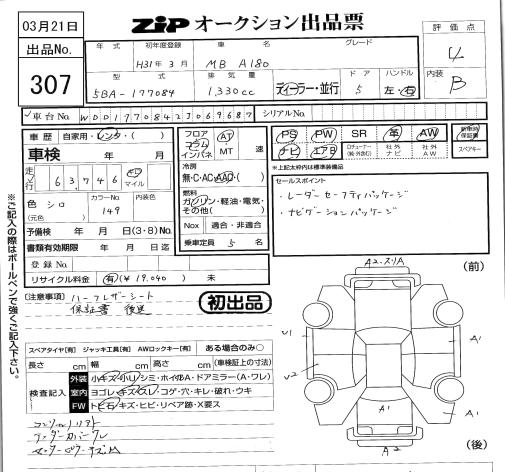 03月21日
ZiP オークション出品票
出品No.
307
年式 初年度登録 車名 グレード
H31年 3月 MB A180
型式 排気量 ドア ハンドル
5BA-177084 1,330cc ディーラー・並行 5 左・右
評価点
4
内装
B
車台No. WDD1770842J069687 シリアルNo.
車歴 自家用・レンタ・( )
車検 年 月
走行 63,746 km マイル
色 シロ カラーNo. 149 内装色
(元色)
予備検 年 月 日(3・8)No.
書類有効期限 年 月 日迄
登録No.
リサイクル料金 有(¥19,040) 未
フロア コラム インパネ AT MT 速
冷房
無・C・AC・AAC・( )
燃料
ガソリン・軽油・電気・その他( )
Nox 適合・非適合
乗車定員 5 名
PS PW SR 革 AW 新車時保証書
ナビ エアB 社外ナビ 社外AW スペアキー
*上記太枠内は標準装備品
セールスポイント
・レーダーセーフティパッケージ
・ナビゲーションパッケージ
(注意事項) ハーフレザーシート
保証書 後送
初出品
スペアタイヤ[有] ジャッキ工具[有] AWロックキー[有] ある場合のみ○
長さ cm 幅 cm 高さ cm (車検証上の寸法)
検査記入
外装 小キズ・小凹・シミ・ホイルBA・ドアミラー(A・ワレ)
室内 ヨゴレ・キズ・スレ・コゲ・穴・キレ・破れ・ウキ
FW トビ石・キズ・ヒビ・リペア跡・X要ス
アンダーカバーワレ
(前)
A2・スリA
U1
A1
U2
A1
A1
A2
(後)
※ご記入の際はボールペンで強くご記入下さい。